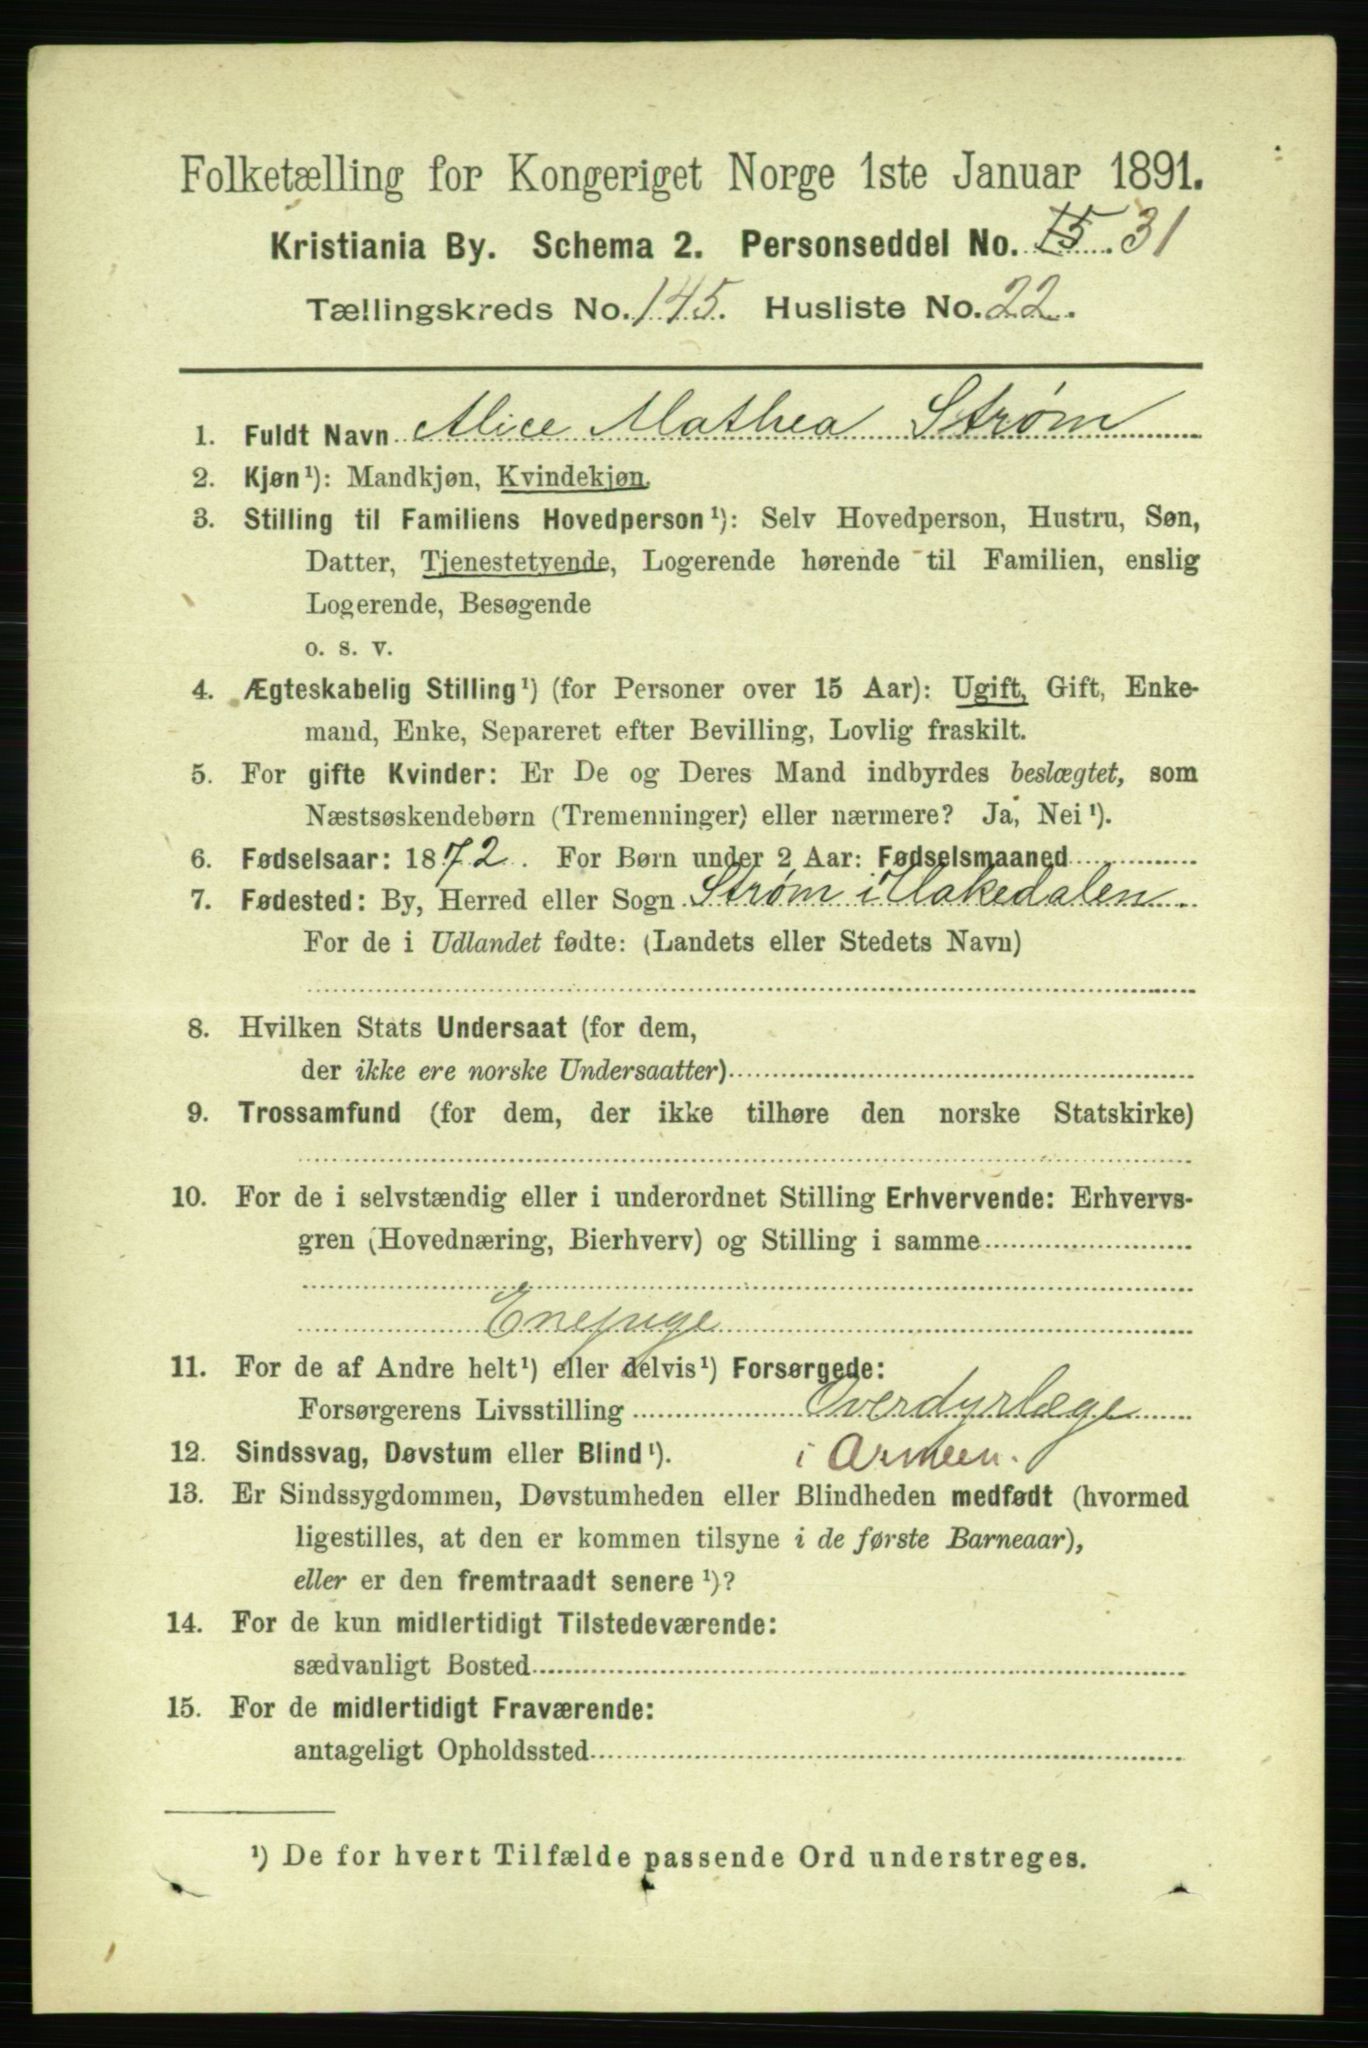 Folketælling for Kongeriget Norge 1ste Januar 1891.
Kristiania By. Schema 2. Personseddel No. 15. 31
Tællingskreds No. 145. Husliste No. 22.
1. Fuldt Navn Alice Mathea Strøm
2. Kjøn¹): Mandkjøn, Kvindekjøn.
3. Stilling til Familiens Hovedperson¹): Selv Hovedperson, Hustru, Søn,
Datter, Tjenestetyende, Logerende hørende til Familien, enslig
Logerende, Besøgende
o. s. v.
4. Ægteskabelig Stilling¹) (for Personer over 15 Aar): Ugift, Gift, Enke-
mand, Enke, Separeret efter Bevilling, Lovlig fraskilt.
5. For gifte Kvinder: Er De og Deres Mand indbyrdes beslægtet, som
Næstsøskendebørn (Tremenninger) eller nærmere? Ja, Nei¹).
6. Fødselsaar: 1872. For Børn under 2 Aar: Fødselsmaaned
7. Fødested: By, Herred eller Sogn Strøm i Hakedalen
For de i Udlandet fødte: (Landets eller Stedets Navn)
8. Hvilken Stats Undersaat (for dem,
der ikke ere norske Undersaatter)
9. Trossamfund (for dem, der ikke tilhøre den norske Statskirke)
10. For de i selvstændig eller i underordnet Stilling Erhvervende: Erhvervs-
gren (Hovednæring, Bierhverv) og Stilling i samme
Enepige
11. For de af Andre helt¹) eller delvis¹) Forsørgede:
Forsørgerens Livsstilling Overdyrlæge
12. Sindssvag, Døvstum eller Blind¹). i Armeen.
13. Er Sindssygdommen, Døvstumheden eller Blindheden medfødt (hvormed
ligestilles, at den er kommen tilsyne i de første Barneaar),
eller er den fremtraadt senere¹)?
14. For de kun midlertidigt Tilstedeværende:
sædvanligt Bosted
15. For de midlertidigt Fraværende:
antageligt Opholdssted
¹) De for hvert Tilfælde passende Ord understreges.